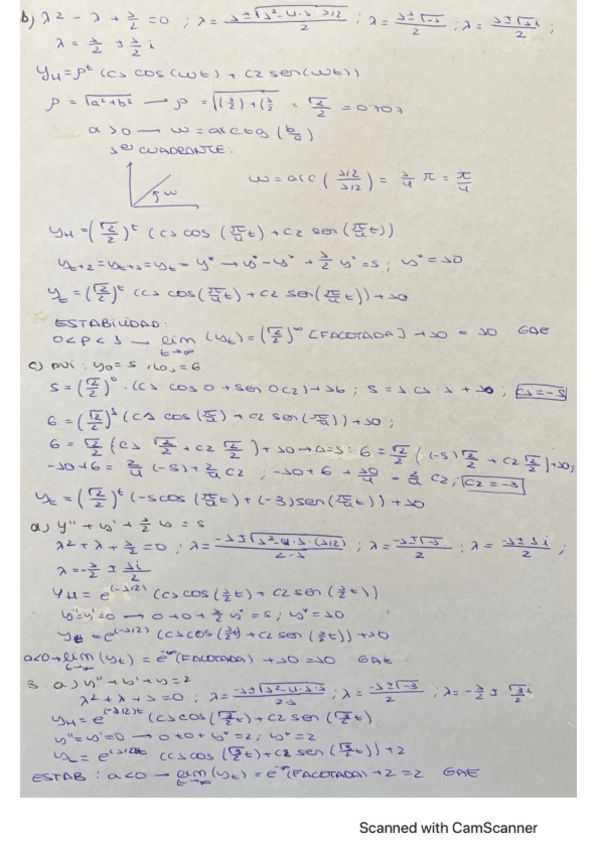 b) λ² - λ + 1/2 = 0 ; λ = 1±√(1²-4·1·1/2) / 2 ; λ = 1±√-1 / 2 ; λ = 1±1i / 2 ;
λ = 1/2 ± 1/2 i
y_H = ρ^t (C1 cos(Wt) + C2 sen(Wt))
ρ = √(a²+b²) → ρ = √((1/2)+(1/2) = √2/2 = 0'707
a>0 → W = arctg (b/a)
1er CUADRANTE:
W = arc ( 1/2 / 1/2 ) = 1/4 π = π/4
W
y_H = (√2/2)^t (C1 cos (π/4 t) + C2 sen (π/4 t))
y_t+2 = y_t+1 = y_t = y* → y* - y* + 1/2 y* = 5 ; y* = 10
y_t = (√2/2)^t (C1 cos(π/4 t) + C2 sen(π/4 t)) + 10
ESTABILIDAD:
0<ρ<1 → lim t→∞ (y_t) = (√2/2)^∞ [FACOTADA] + 10 = 10 GAE
c) PVI : y0 = 5 , y1 = 6
5 = (√2/2)^0 · (C1 cos 0 + sen 0 C2) + 10 ; 5 = 1 C1 · 1 + 10 ; C1 = -5
6 = (√2/2)^1 (C1 cos (π/4) + C2 sen(π/4)) + 10 ;
6 = √2/2 (C1 √2/2 + C2 √2/2) + 10 → 6 = √2/2 ( (-5) √2/2 + C2 √2/2 ) + 10 ;
-10+6 = 2/4 (-5) + 2/4 C2 ; -10 + 6 + 10/4 = 2/4 C2 ; C2 = -3
y_t = (√2/2)^t (-5 cos (π/4 t) + (-3) sen(π/4 t)) + 10
a) y'' + y' + 1/2 y = 5
λ² + λ + 1/2 = 0 ; λ = -1±√(1²-4·1·(1/2)) / 2·1 ; λ = -1±√-1 / 2 ; λ = -1±1i / 2 ;
λ = -1/2 ± 1i/2
y_H = e^(-1/2) (C1 cos(1/2 t) + C2 sen(1/2 t))
y'' = y' = 0 → 0 + 0 + 1/2 y* = 5 ; y* = 10
y_t = e^(-1/2) (C1 cos(1/2 t) + C2 sen (1/2 t)) + 10
a<0 → lim t→∞ (y_t) = e^-∞ (FACOTADA) + 10 = 10 GAE
3. a) y'' + y' + y = 2
λ² + λ + 1 = 0 ; λ = -1±√(1²-4·1·1) / 2·1 ; λ = -1±√-3 / 2 ; λ = -1/2 ± √3/2 i
y_H = e^(-1/2)t (C1 cos(√3/2 t) + C2 sen (√3/2 t)
y'' = y' = 0 → 0 + 0 + y* = 2 ; y* = 2
y_t = e^(-1/2)t (C1 cos (√3/2 t) + C2 sen (√3/2 t)) + 2
ESTAB : a<0 → lim t→∞ (y_t) = e^-∞ (FACOTADA) + 2 = 2 GAE
Scanned with CamScanner